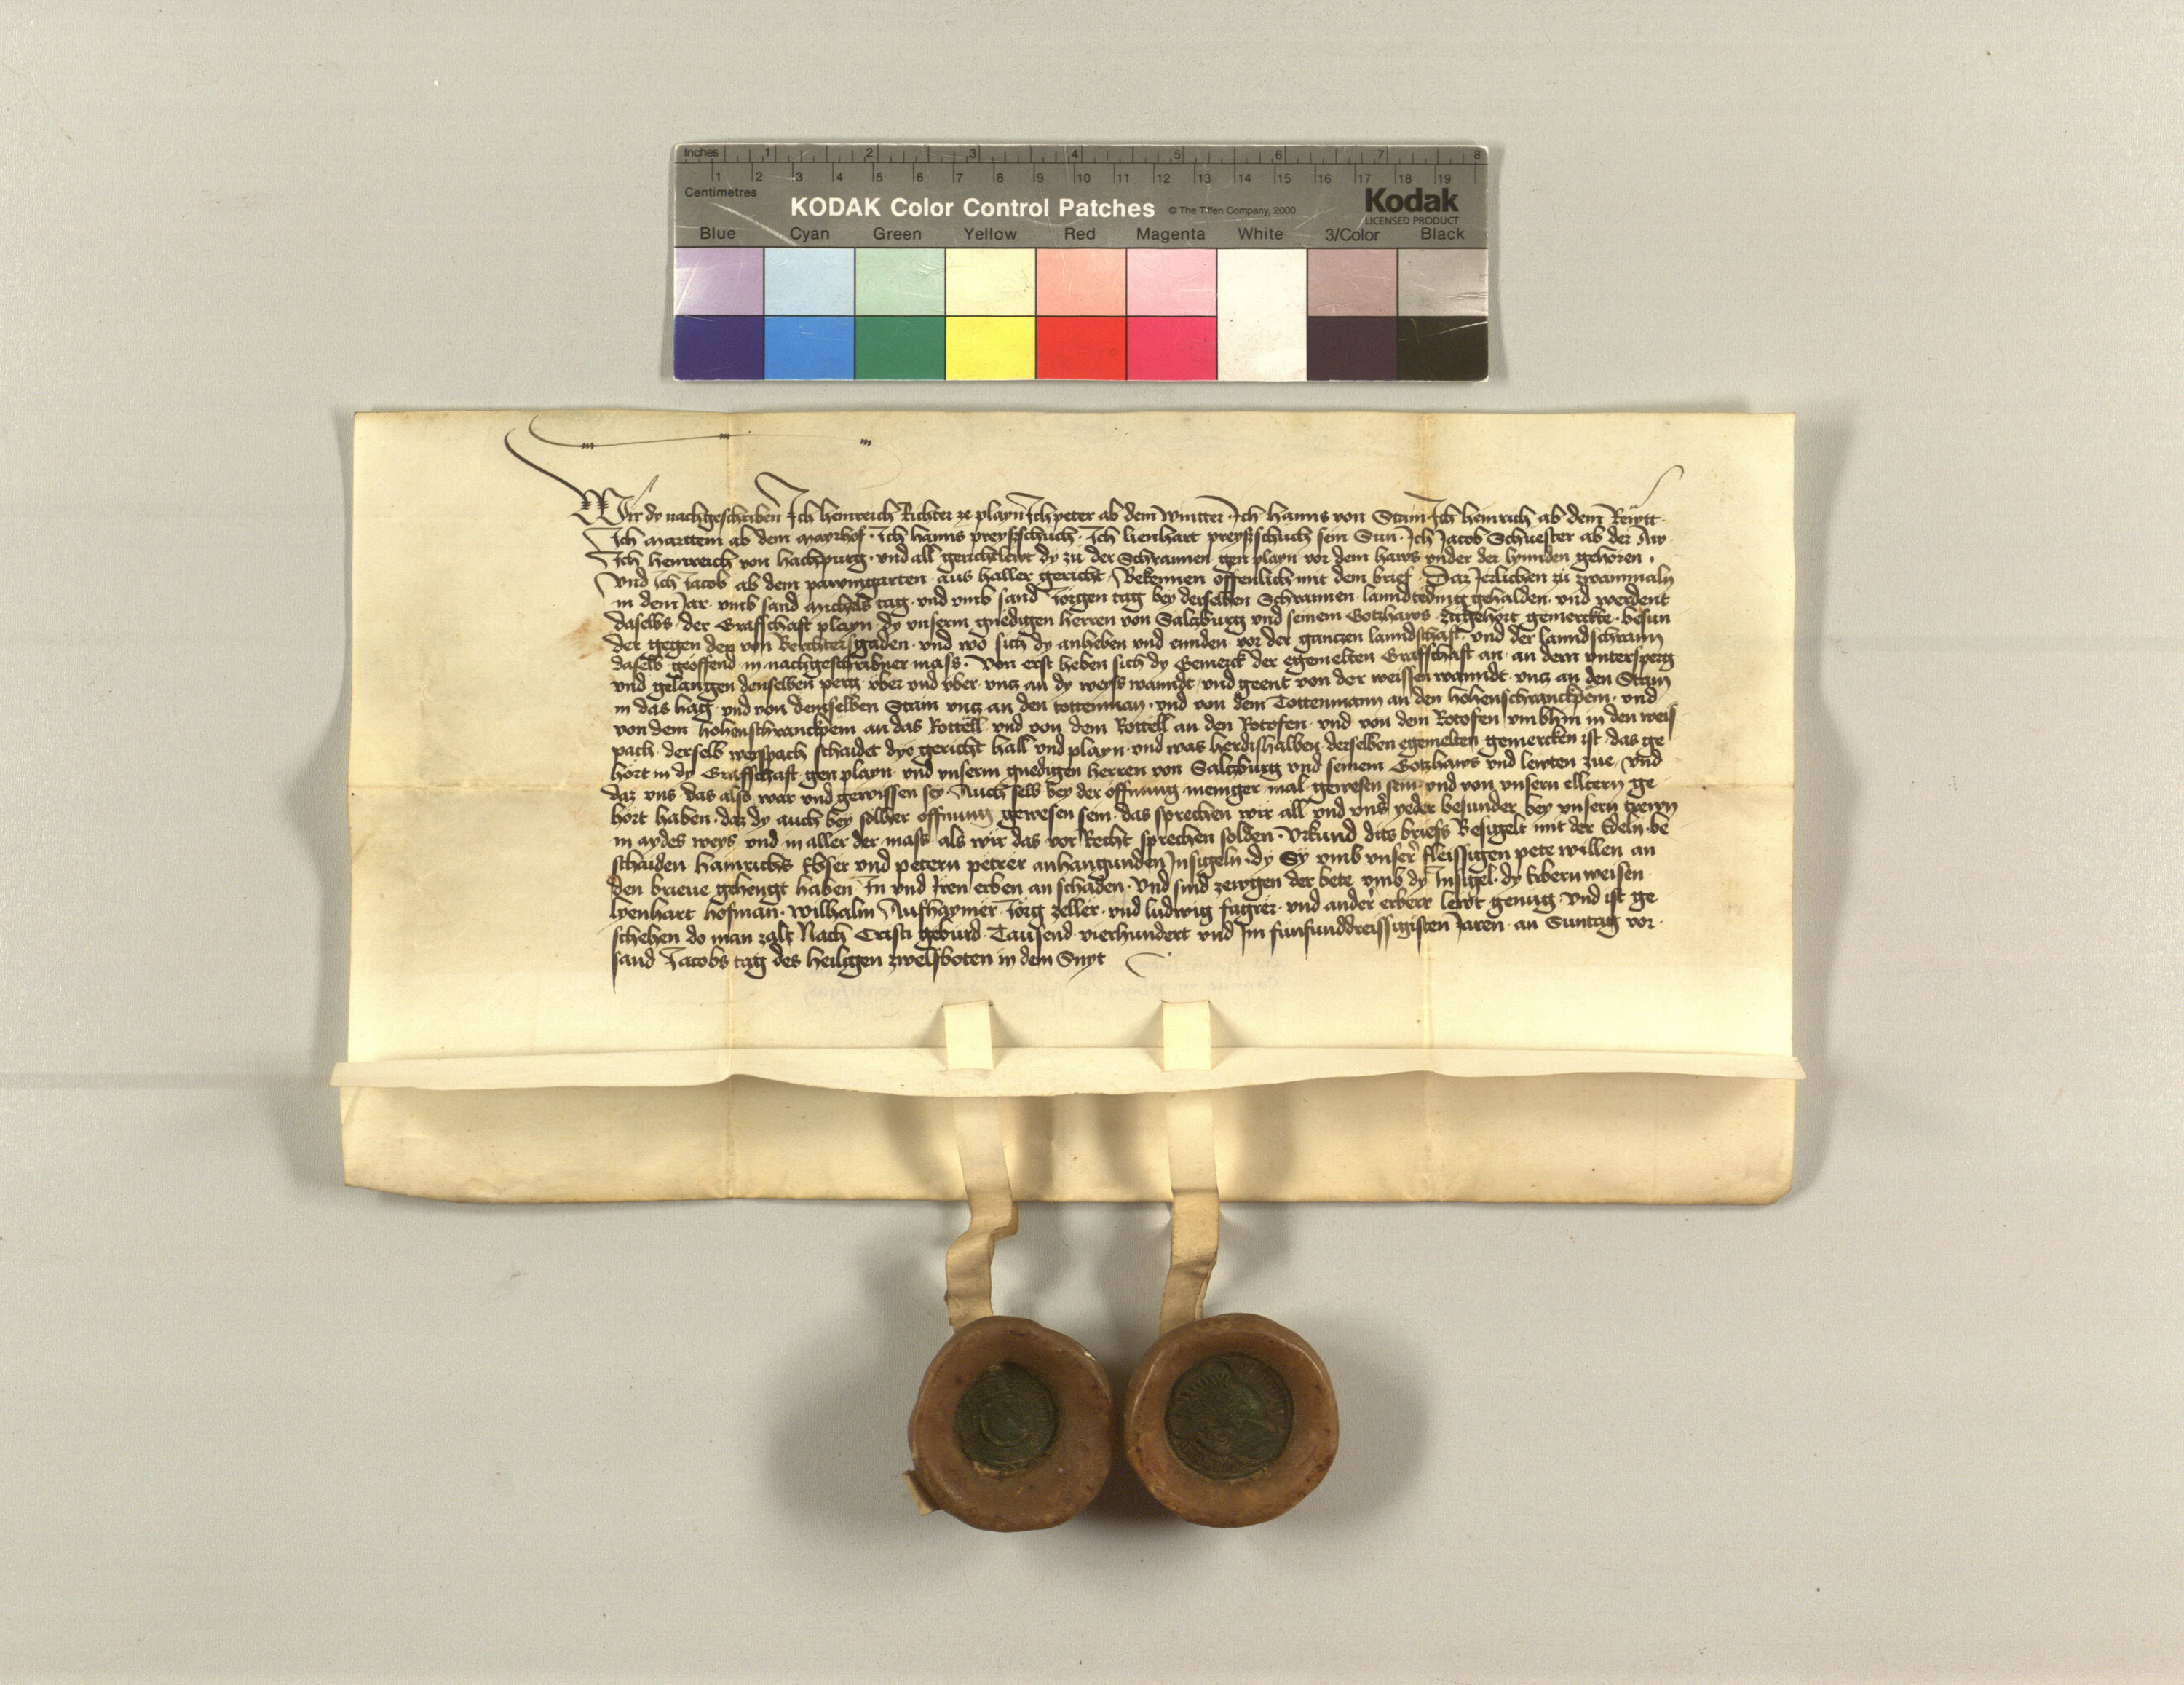 Inches 1 2 3 4 5 6 7 8
1 2 3 4 5 6 7 8 9 10 11 12 13 14 15 16 17 18 19
Centimetres
KODAK Color Control Patches © The Tiffen Company, 2000 Kodak
LICENSED PRODUCT
Blue Cyan Green Yellow Red Magenta White 3/Color Black
Wir dy nachgeschriben Ich Heinreich Richter ze playn Ich peter ab dem Ich Hanns von Stain Ich Heinrich ab dem Rewtt
Ich Marttein ab dem Mayrhof · Ich Hanns preyschuch · Ich lienhart preyschuch sein Sun · Ich Jacob Schuester ab der Aw ·
Ich Heinreich von Hachpurg · vnd all gerichtlewt dy zu der Schrannen gen playn vor dem haws vnder der lynnden gehoren ·
Vnd Ich Jacob ab dem pawmgarten aus Haller gericht · Bekennen offenlich mit dem brief · Daz Jerlichen zu zwainmaln
in dem Jar · vmb sand Michels tag · vnd vmb sand Jörgen tag bey derselben Schrannen lanndteding gehalden · vnd werdent
daselbs · der Grafschaft playn dy vnserm gnedigen herren von Salczburg vnd seinem Gotzhaws zugehört gemerckte · besun
der gegen den von Berchtersgaden · vnd wo sich dy anheben vnd ennden vor der ganczen lanndschaft · vnd der lanndschrann
daselbs geoffend in nachgeschribner mass · Von erst heben sich dy Gemerck der egemelten Grafschaft an · an dem vntersperg
vnd gelangen denselben perg vber vnd vber vncz an dy weyss wanndt · vnd geent von der weissen wanndt vncz an den Stain
in das hag · vnd von demselben Stain vncz an den tottenman · vnd von dem Tottenmann an den hohenschranckpem · vnd
von dem hohenschranckpem an das Rottell · vnd von dem Rottell an den Rotofen · vnd von dem Rotofen vmbhin in den weis
pach · derselb weyspach schaidet dye gericht hall vnd playn · vnd was herdishalben derselben egemelten gemercken ist · das ge
hört in dy Grafschaft gen playn · vnd vnserm gnedigen herren von Salczburg vnd seinem Gotzhaws vnd lewten zue · Vnd
daz vns das also war vnd gewissen sey · Auch selb bey der offnung meniger mal gewesen sein · vnd von vnsern elltern ge
hört haben · daz dy auch bey solher offnung gewesen sein · das sprechen wir all vnd vnser yeder besunder bey vnsern trewn
in aydes weys vnd in aller der mass als wir das vor Recht sprechen solden · Vrkund dits briefs Besigelt mit der Edeln · be
schaiden Hainrichs Ebser vnd petern petrer anhangunden Insigeln · dy Sy vmb vnser fleissigen pete willen an
den brieue gehengt haben In vnd Iren erben an schaden · Vnd sind zewgen der bete vmb dy Insigel · dy Erbern weisen
lyenhart hofman · Wilhalm Aufhaymer · Jörg zeller · vnd ludwig fagrer · vnd ander erberr lewt genug · Vnd ist ge
schehen do man zalt Nach Cristi geburd · Tausend · vierhundert vnd Im funfunddreissigisten Jaren · an Suntag vor ·
sand Jacobs tag des heiligen zwelfboten in dem Snyt